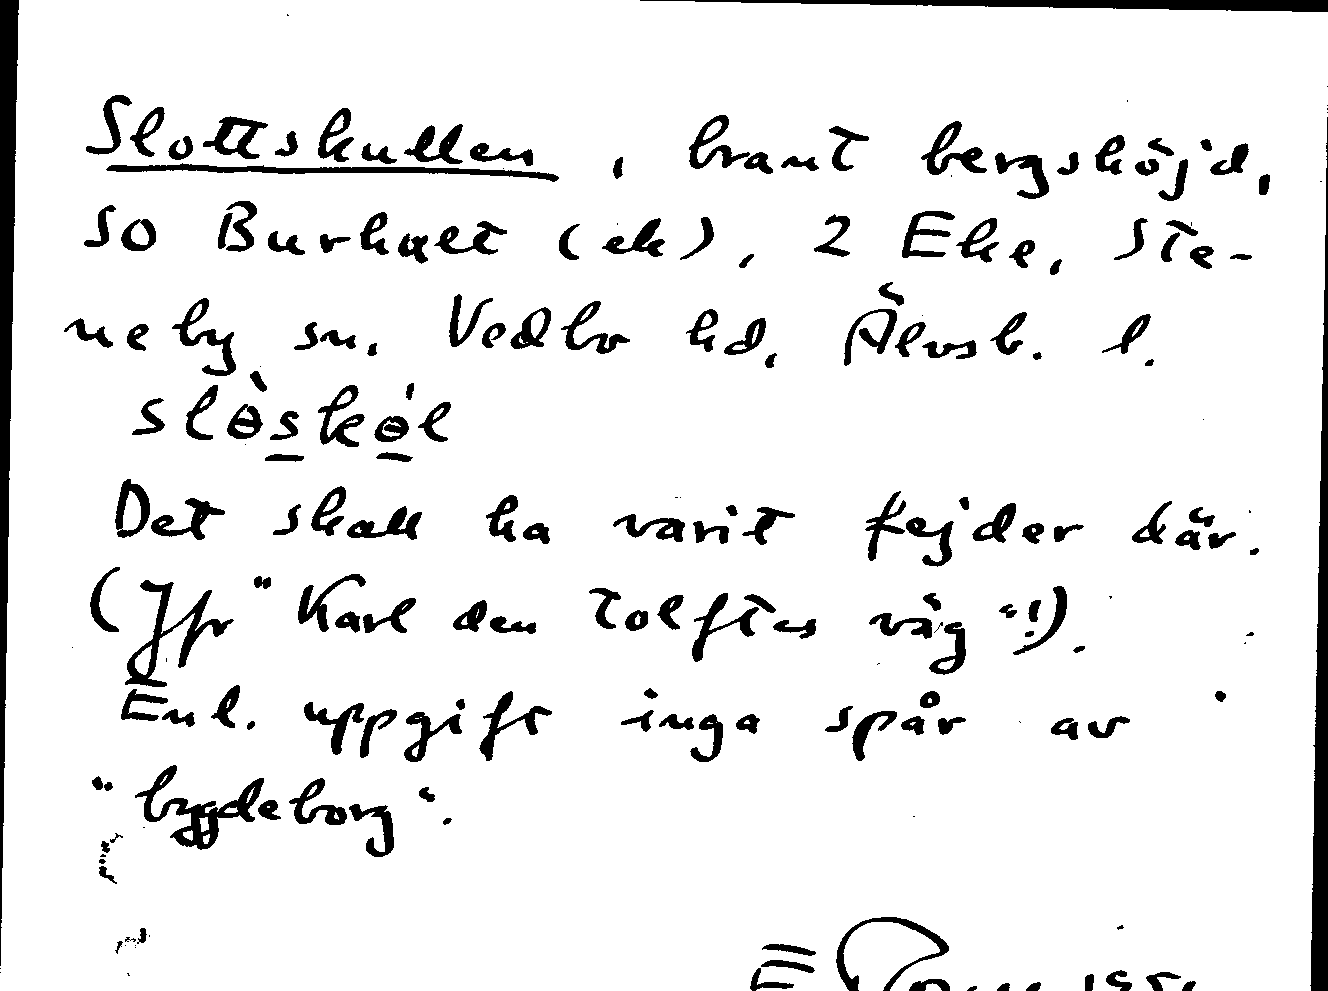 Slottskullen, brant bergshöjd,
so Burhult (ek), 2 Eke, Ste-
neby sn, Vedbo hd, Älvsb. l.
slɵ̀skɵ́l
Det skall ha varit fejder där.
(Jfr "Karl den tolftes väg"!).
Enl. uppgift inga spår av
"bygdeborg".
E